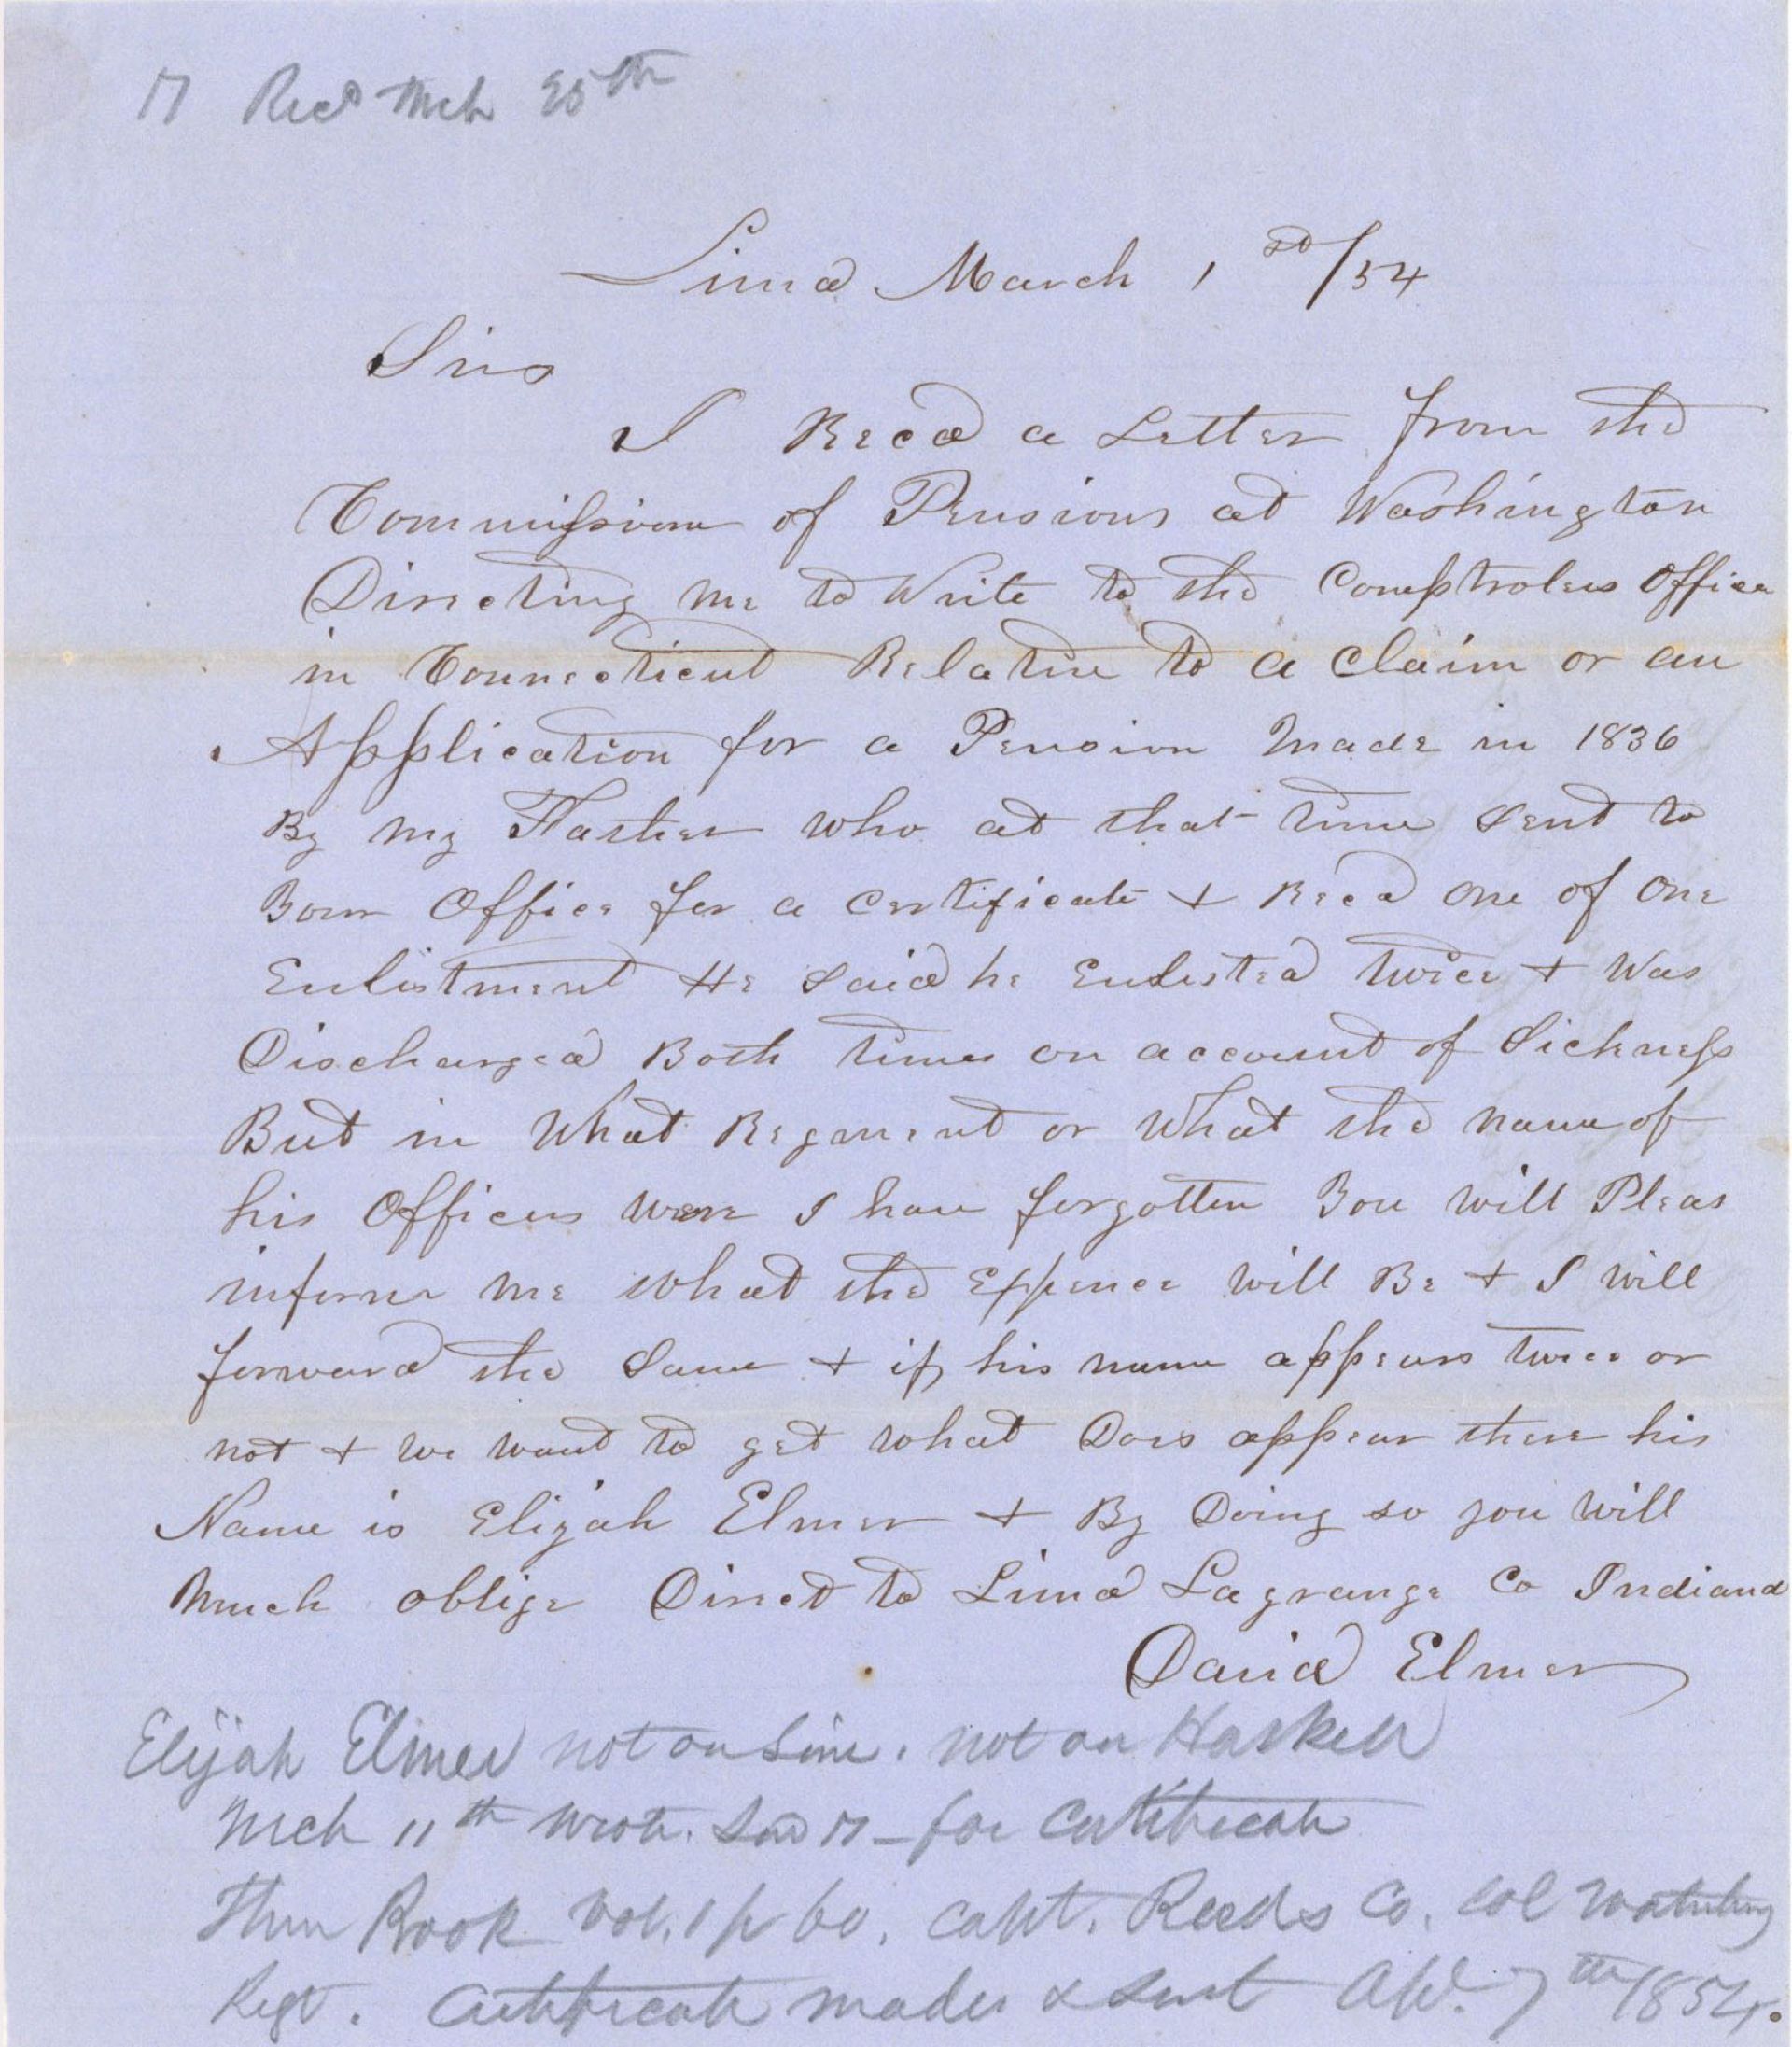 17 Recd Mch 25th
Lima March 1st /54
Sirs
I Recd a Letter from the
Commission of Pensions at Washington
Directing me to Write to the Comptrolers Office
in Connecticut Relative to a claim or an
Application for a Pension Made in 1836
By my Father who at that time Sent to
Your Office for a Certificate & Recd one of one
Enlistment He Said he Enlisted twice & Was
Discharged Both times on account of Sickness
But in What Regment or What the name of
his Officers were I have forgotten You will Pleas
inform me what the Expence will Be & I will
forward the Same & if his name appears twice or
not & we want to get what Does appear there his
Name is Elijah Elmer & By Doing so you will
Much oblige Direct to Lima Lagrange Co Indiana
David Elmer
Elijah Elmer not on Line. not on Haskell
Mch 11th wrote. Send 17 - for Certificate
Then Book Vol. 1 p 60. Capt. Reeds Co. Col Waterbury
Regt. Certificate made & sent Ap. 7th 1854.